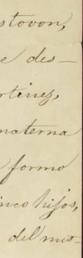 stovon,
e des-
rtines,
materna
formo
inco hijos,
del mat-